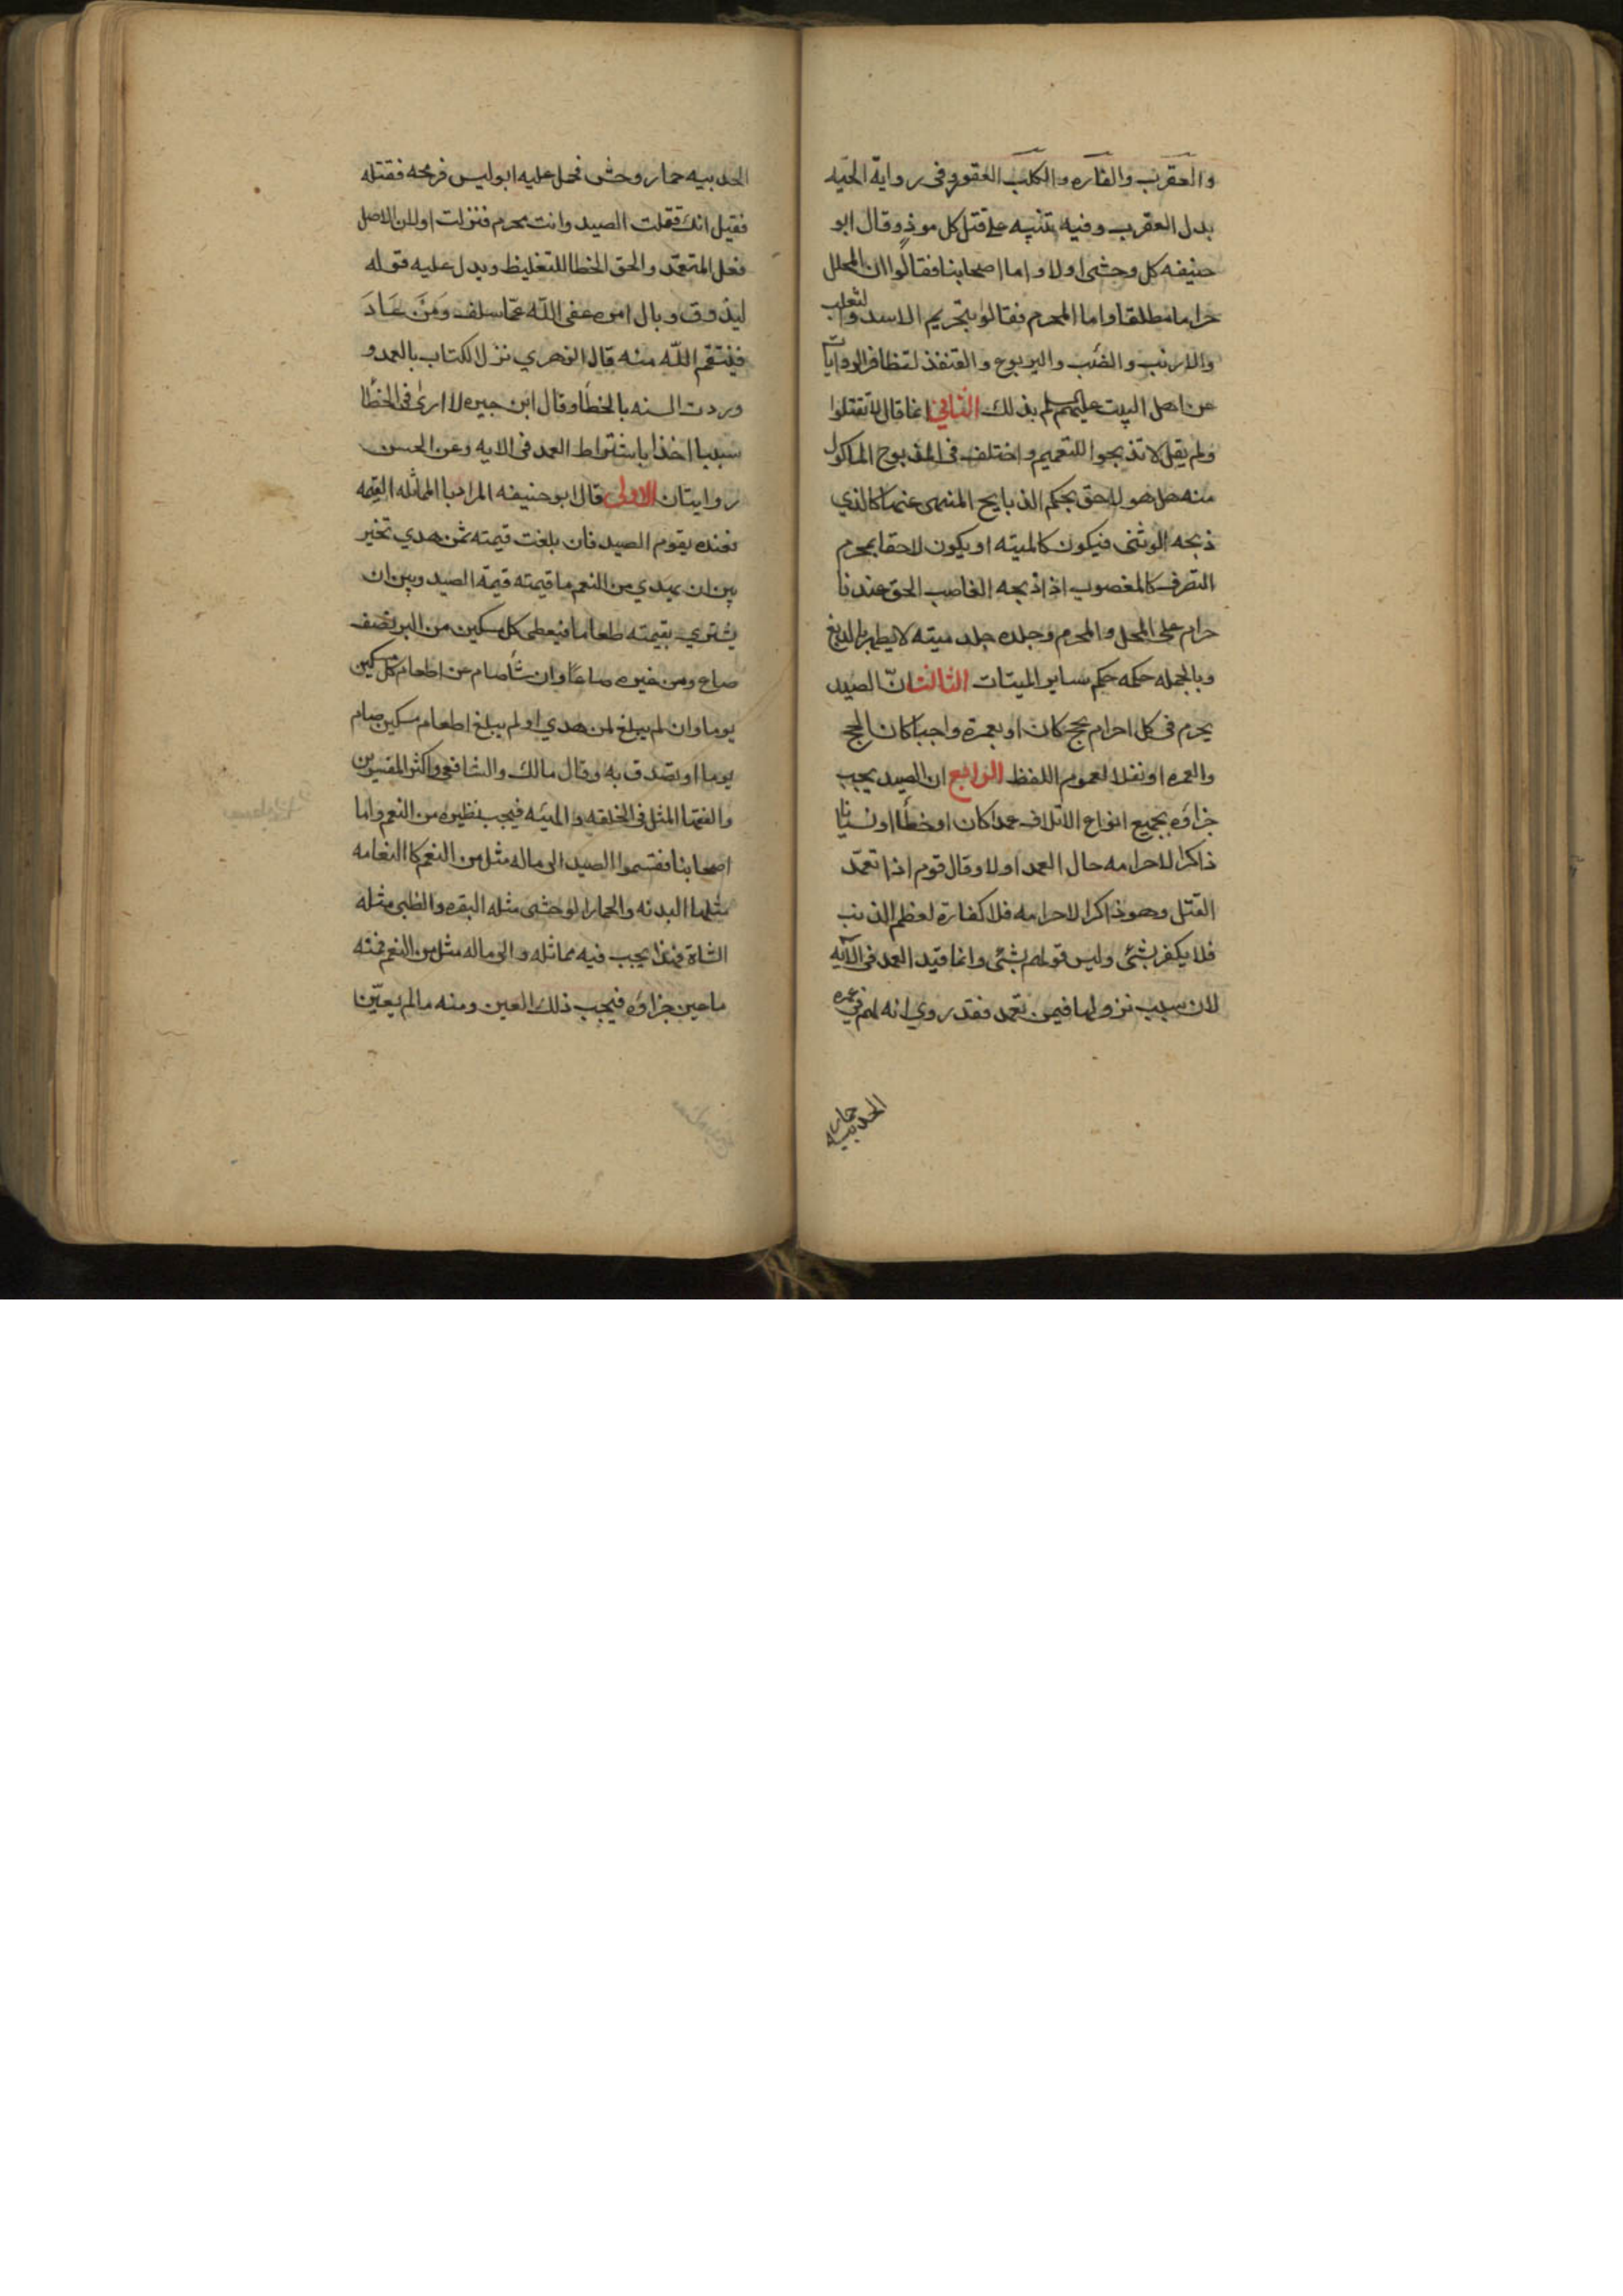 والعقرب والفاره والكلب العقور وفى رواية الحيّه
بدل العقرب وفيه تنبيه على قتل كل موذٍ وقال ابو
حنيفه كل وحشى اولا واما اصحابنا فقالوا ان المحلل
حراما مطلقا واما المحرم فقالوا بتحريم الاسد والثعلب
والارنب والضب واليربوع والقنفذ لتظافر الروايات
عن اهل البيت عليهم السلم بذلك الثانى انما قال لا تقتلوا
ولم يقل لا تذبحوا للتعميم واختلف فى المذبوح الماكول
منه هل هو لاحق بحكم الذبايح المنهى عنها كالذي
ذبحه الوثنى فيكون كالميته او يكون لاحقا بمحرم
التصرف كالمغصوب اذا ذبحه الغاصب الحق عندنا
حرام على المحل والمحرم وجلده جلد ميته لا يطهر بالدبغ
وبالجمله حكمه حكم ساير الميتات الثالث انّ الصيد
يحرم فى كل احرام بحج كان او بعمرة واجبا كان الحج
والعمره او نفلا لعموم اللفظ الرابع ان الصيد يجب
جزاؤه بجميع انواع الاتلاف عمدا كان او خطأ او نسيانا
ذاكرا لاحرامه حال العمد اولا وقال قوم اذا تعمّد
القتل وهو ذاكرا لاحرامه فلا كفارة لعظم الذنب
فلا يكفر بشئى وليس قولهم بشئى وانما قيد العمد فى الآيه
لان سبب نزولها فيمن تعمد فقد روي انه لهم فى عمره
الحديبيه حمار
الحديبيه حمار وحش فحمل عليه ابو ليس فرمحه فقتله
فقيل انك قتلت الصيد وانت محرم فنزلت او لان الاصل
فعل المتعمّد والحق الخطا للتغليظ ويدل عليه قوله
ليذوق وبال امره عفى اللّه عمّا سلف وَمَنْ عَادَ
فينتقم اللّه منه قال الزهري نزل الكتاب بالعمد و
وردت السنه بالخطأ وقال ابن جبيره لا ارىٰ فى الخطأ
سببا اخذا باشتراط العمد فى الايه وعن الحسن
روايتان الاولى قال ابو حنيفه المراد باالماثله القيمه
فعنده يقوم الصيد فان بلغت قيمته ثمن هدي تخير
بين ان يهدي من النعم ما قيمته قيمة الصيد وبين ان
يشتري بقيمته طعاما فيعطى كل مسكين من البر نصف
صاع ومن غيره صاعا وان شأ صام عن اطعام كل مسكين
يوما وان لم يبلغ لمن هدي او لم يبلغ اطعام مسكين صام
يوما او تصدق به وقال مالك والشافعى واكثر المفسرين
والفقها المثل فى الخلقه والهيئه فيجب نظيره من النعم واما
اصحابنا فقسموا الصيد الى ماله مثل من النعم كاالنعامه
مثلها البدنه والحمار الوحشى مثله البقره والظبى مثله
الشاة فهذا يجب فيه مماثله والى ماله مثل من النعم فمنه
ما عين جزاؤه فيجب ذلك العين ومنه مالم يعيّن